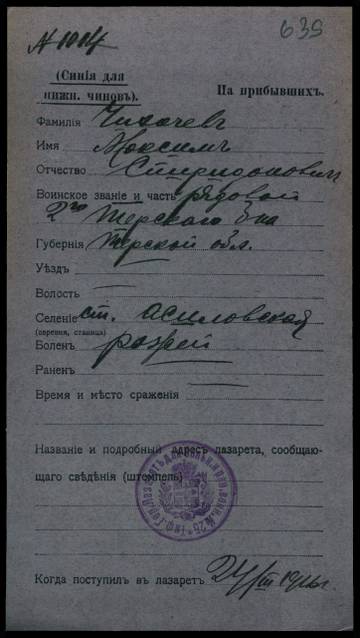 639
№ 1014
(Синія для
нижн. чиновъ).
На прибывшихъ.
Фамилія Чихачевъ
Имя Максимъ
Отчество Спиридоновичъ
Воинское званіе и часть рядовой
2го Терского б-на
Губернія Терской обл.
Уѣздъ
Волость
Селеніе ст. Асиловская
(деревня, станица)
Боленъ
Раненъ
Время и мѣсто сраженія
Названіе и подробный адресъ лазарета, сообщаю-
щаго свѣдѣнія (штемпель)
Когда поступилъ въ лазаретъ 24/III 1916г.